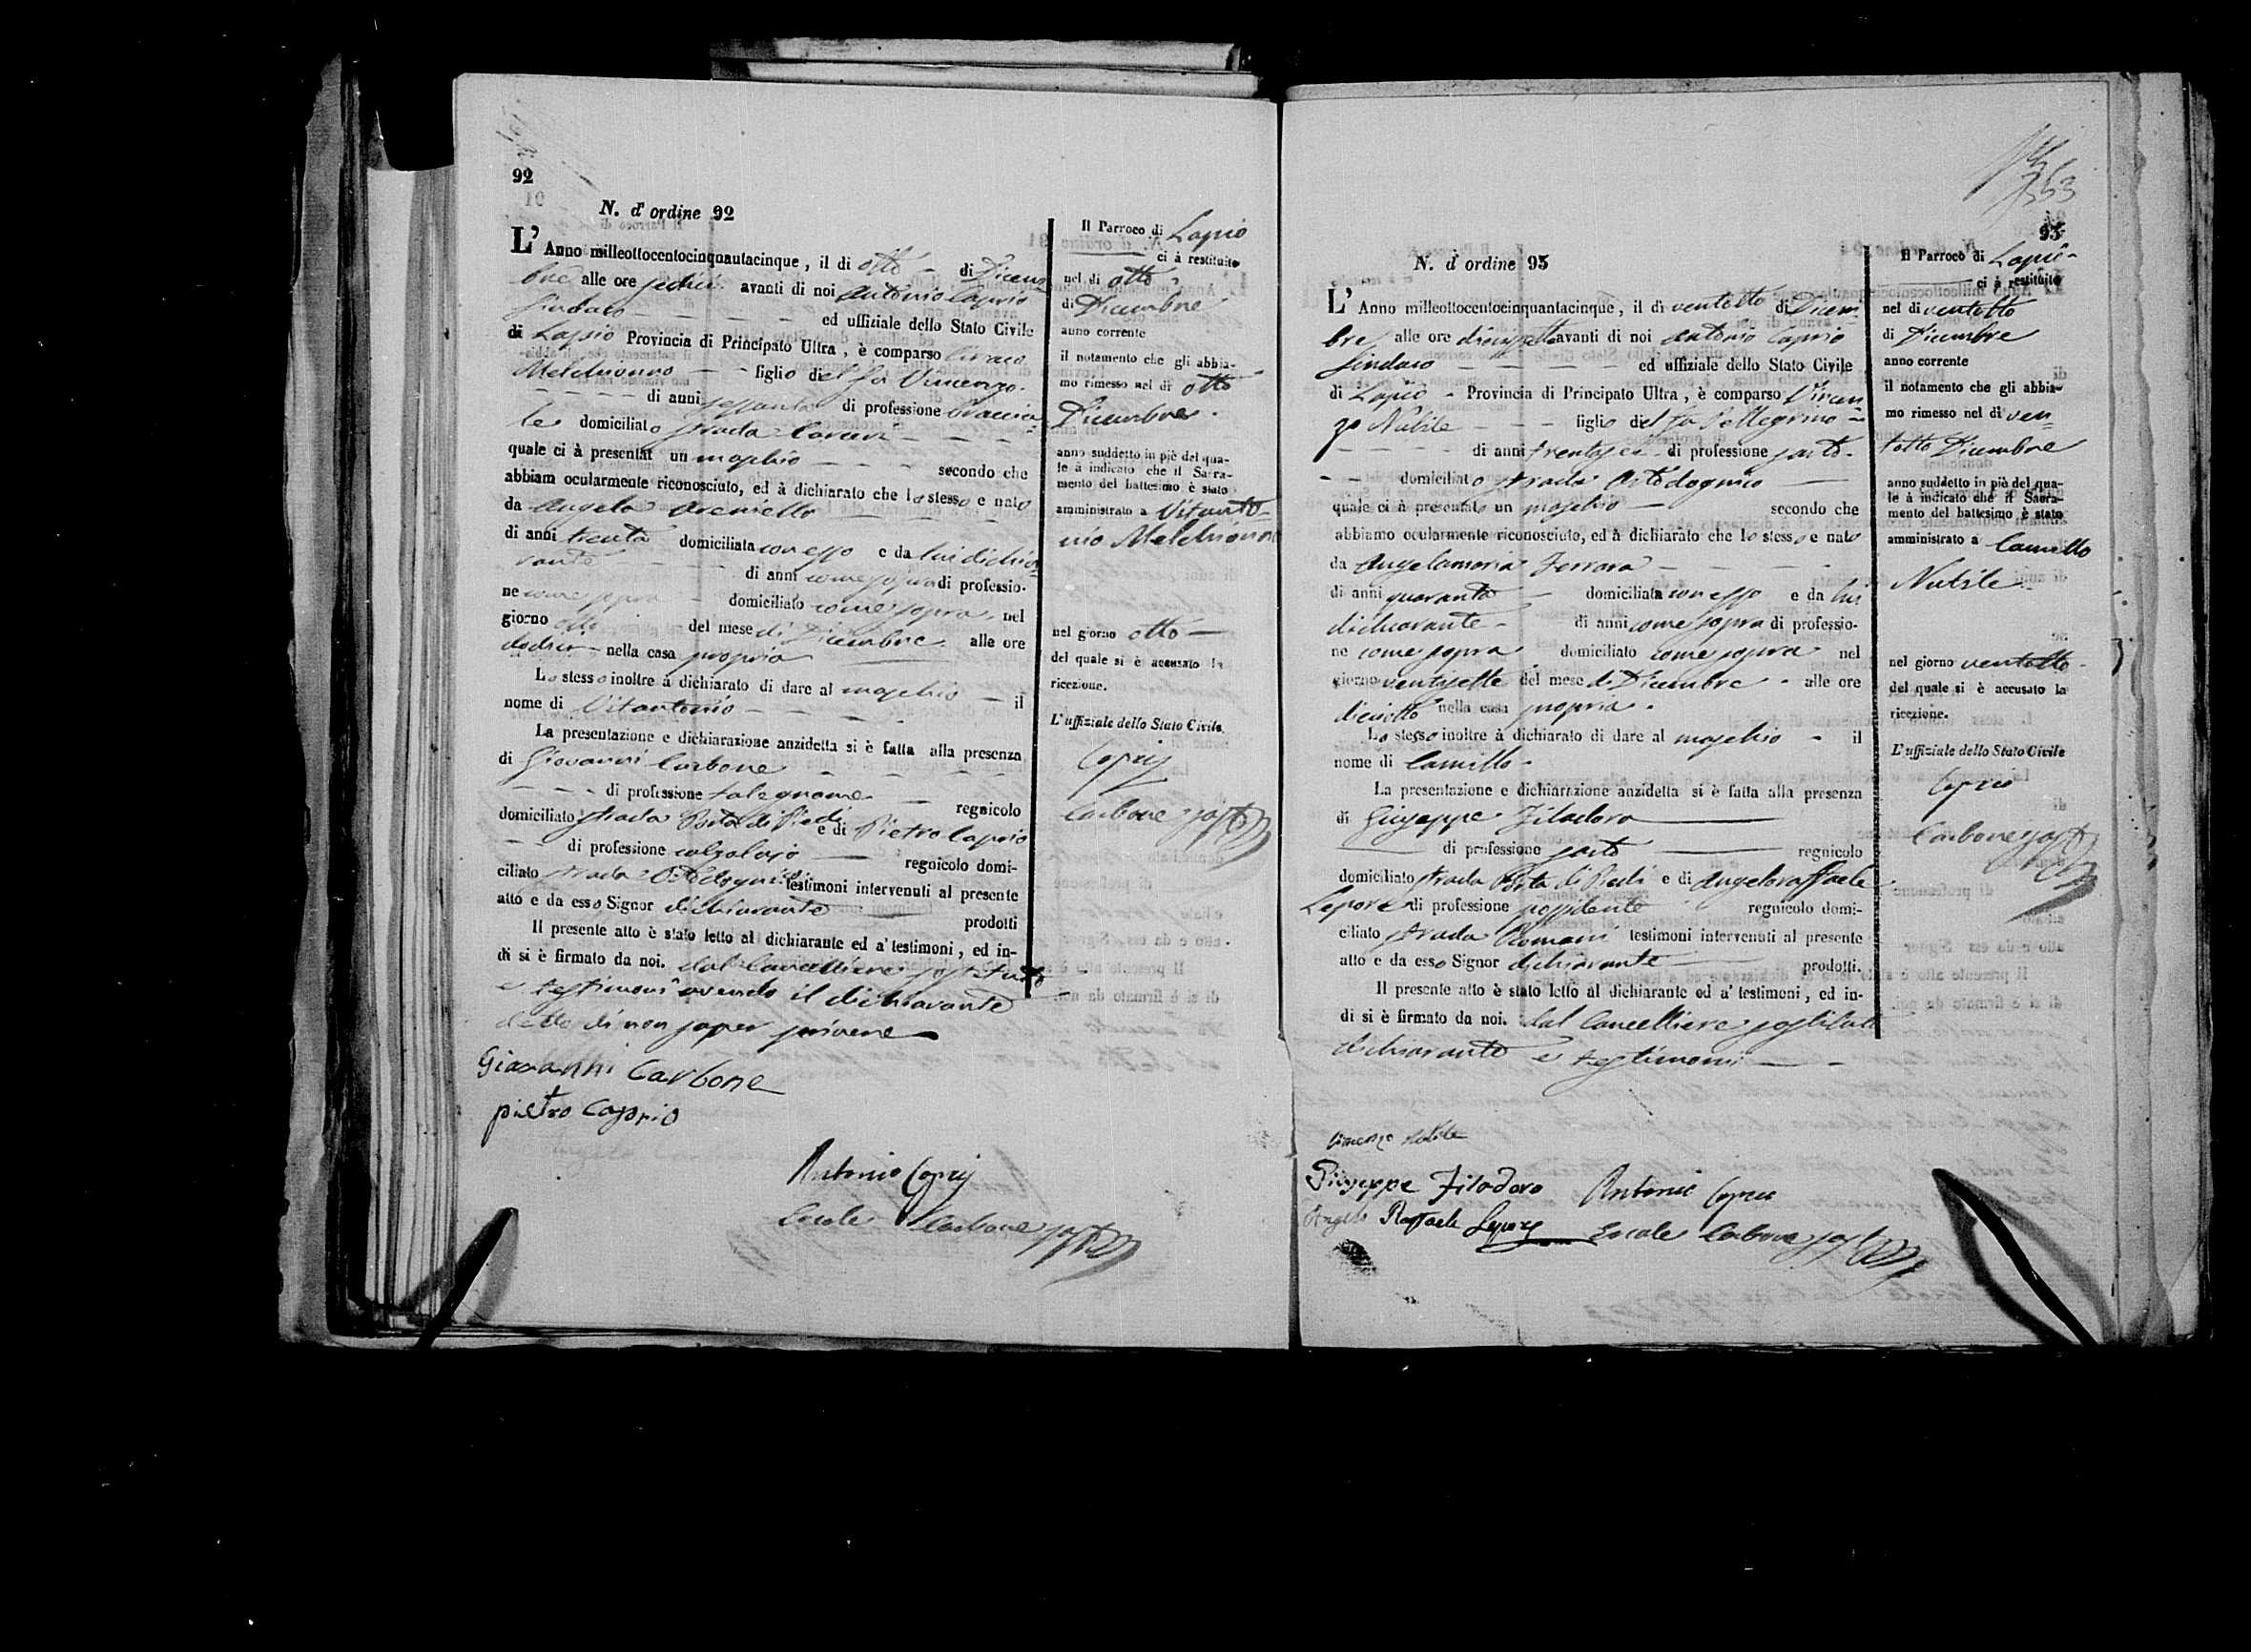 92
N. d' ordine 92
L' Anno milleottocentocinquantacinque, il di otto di Dicem
bre alle ore sedici avanti di noi Antonio Caprio
Sindaco ed uffiziale dello Stato Civile
di Lapio Provincia di Principato Ultra, è comparso Ciriaco
Melchionno figlio del fu Vincenzo
di anni sessanta di professione Braccia
le domiciliato strada
quale ci à presentat un maschio secondo che
abbiam ocularmente riconosciuto, ed à dichiarato che lo stesso e nato
da Angela Arciello
di anni trenta domiciliata con esso e da lui dichia
rante di anni come sopra di professio-
ne come sopra domiciliato come sopra nel
giorno otto del mese di Dicembre alle ore
dodici nella casa propria
Lo stesso inoltre à dichiarato di dare al maschio il
nome di Vitantonio
La presentazione e dichiarazione anzidetta si è fatta alla presenza
di Giovanni Carbone
di professione falegname regnicolo
domiciliato strada Porta di Piedi e di Pietro Caprio
di professione calzolajo regnicolo domi-
ciliato strada Ortodognico testimoni intervenuti al presente
atto e da esso Signor dichiarante prodotti
Il presente atto è stato letto al dichiarante ed a' testimoni, ed in-
di si è firmato da noi. dal Cancelliere sostituto
e testimoni avendo il dichiarante
detto di non saper scrivere
Giovanni Carbone
pietro Caprio
Antonio Caprio
Carbone sost
Il Parroco di Lapio
ci à restituito
nel di otto
di Dicembre
anno corrente
il notamento che gli abbia-
mo rimesso nel di otto
Dicembre
anno suddetto in piè del qua-
le à indicato che il Sacra-
mento del battesimo è stato
amministrato a Vitanto
nio Melchionno
nel giorno otto
del quale si è accusato la
ricezione.
L' uffiziale dello Stato Civile
Caprio
Carbone sost
353
93
N. d' ordine 93
L' Anno milleottocentocinquantacinque, il dì ventotto di Dicem
bre alle ore diciassette avanti di noi Antonio Caprio
Sindaco ed uffiziale dello Stato Civile
di Lapio Provincia di Principato Ultra, è comparso Vincen
zo Nubile figlio del fu Pellegrino
di anni trentasei di professione sarto
domiciliato strada Ortodognico
quale ci à presentato un maschio secondo che
abbiamo ocularmente riconosciuto, ed à dichiarato che lo stesso e nato
da Angelamaria Ferrara
di anni quaranta domiciliata con esso e da lui
dichiarante di anni come sopra di professio-
ne come sopra domiciliato come sopra nel
giorno ventisette del mese di Dicembre alle ore
diciotto nella casa propria
Lo stesso inoltre à dichiarato di dare al maschio il
nome di Camillo
La presentazione e dichiarazione anzidetta si è fatta alla presenza
di Giuseppe Filadoro
di professione sarto regnicolo
domiciliato strada Porta di Piedi e di Angeloraffaele
Lepore di professione possidente regnicolo domi-
ciliato strada Romani testimoni intervenuti al presente
atto e da esso Signor dichiarante prodotti.
Il presente atto è stato letto al dichiarante ed a' testimoni, ed in-
di si è firmato da noi. dal Cancelliere sostituto
dichiarante e testimoni
Vincenzo Nubile
Giuseppe Filodoro
Angelo Raffaele Lepore
Antonio Caprio
Carbone sost
Il Parroco di Lapio
ci à restituito
nel di ventotto
di Dicembre
anno corrente
il notamento che gli abbia-
mo rimesso nel dì ven
totto Dicembre
anno suddetto in piè del qua-
le à indicato che il Sacra-
mento del battesimo è stato
amministrato a Camillo
Nubile
nel giorno ventotto
del quale si è accusato la
ricezione.
L' uffiziale dello Stato Civile
Caprio
Carbone sost